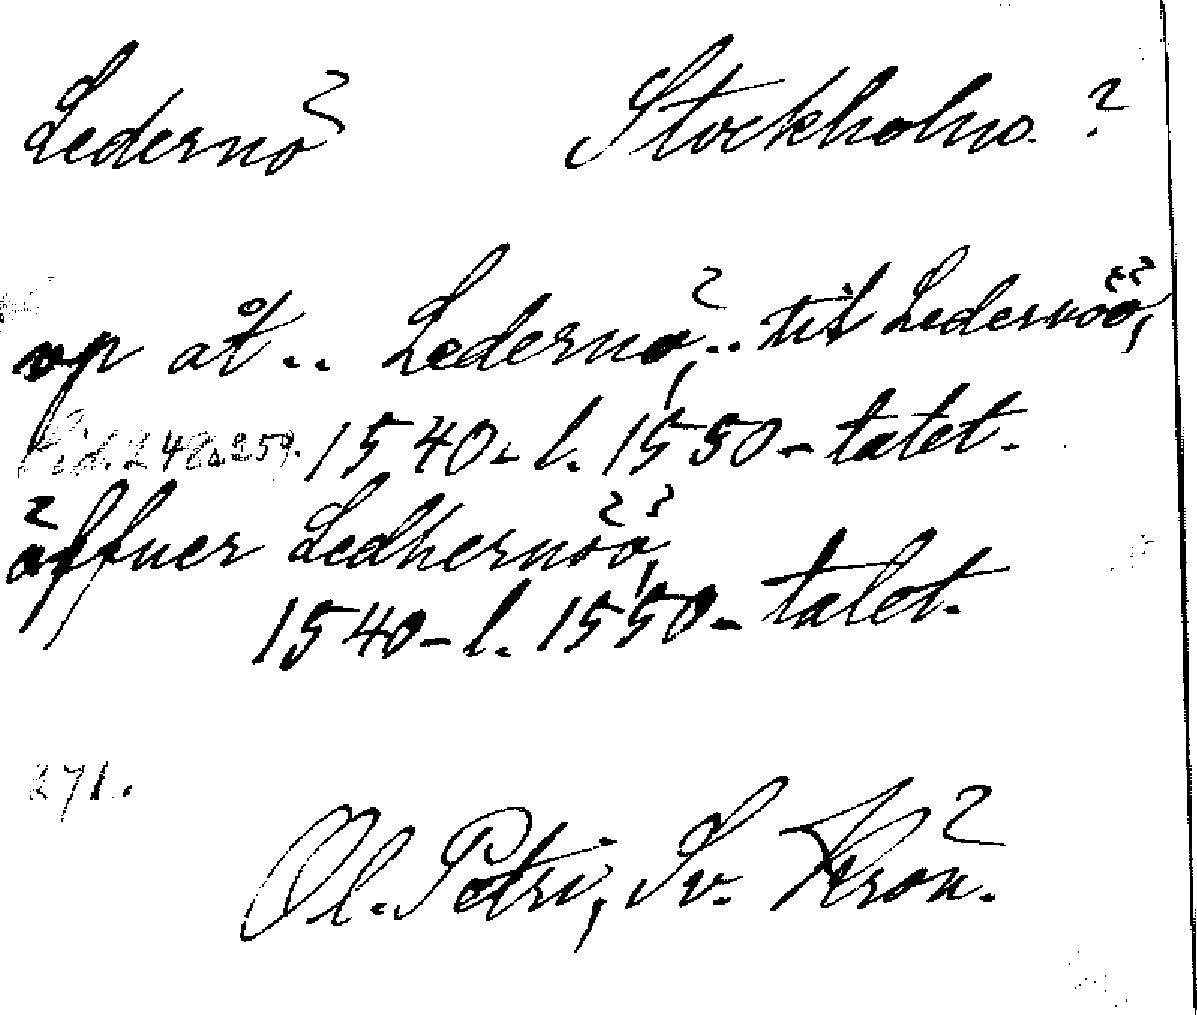 Ledernö Stockholm. ?
vp åt.. Ledernö,.. til Ledernöö,
Sid. 248a259. 1540-l. 1550-talet.
öffuer Ledhernöö,
1540-l. 1550-talet.
271.
Ol. Petri, Sv. Krön.